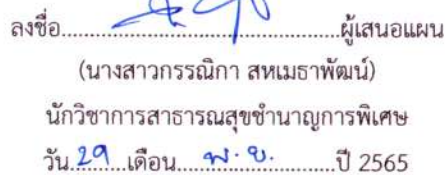 ลงชื่อ..........................................ผู้เสนอแผน
(นางสาวกรรณิกา สหเมธาพัฒน์)
นักวิชาการสาธารณสุขชำนาญการพิเศษ
วัน.29...เดือน.....พ.ย.........ปี 2565